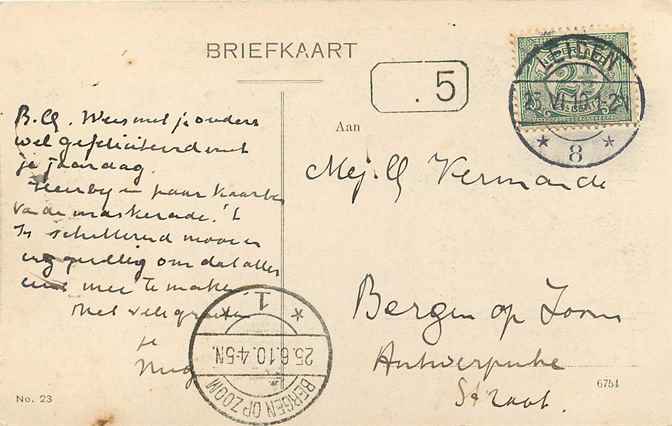 BRIEFKAART
NEDERLAND
2½
CENT
LEIDEN
8
. 5
B.G. Wees met je ouders
wel gefeliciteerd met
je jaardag.
Hierbij een paar kaarten
van de maskerade. 't
Is schitterend mooi en
erg gezellig om dat alles
eens mee te maken.
Met vele groeten
je
Aan
Mej. G Vermande
Bergen op Zoom
Antwerpsche
Straat.
1
25.6.10.4-5N.
BERGEN OP ZOOM
No. 23
6751